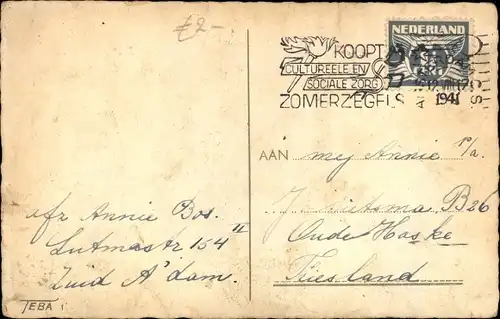 £2-
NEDERLAND
KOOPT
CULTUREELE EN
SOCIALE ZORG
ZOMERZEGELS
1941
AAN mej Annie p/a.
B26
Oude Haske
Friesland
afr Annie Bos.
Lutmastr 154 II
Zuid A'dam.
JEBA